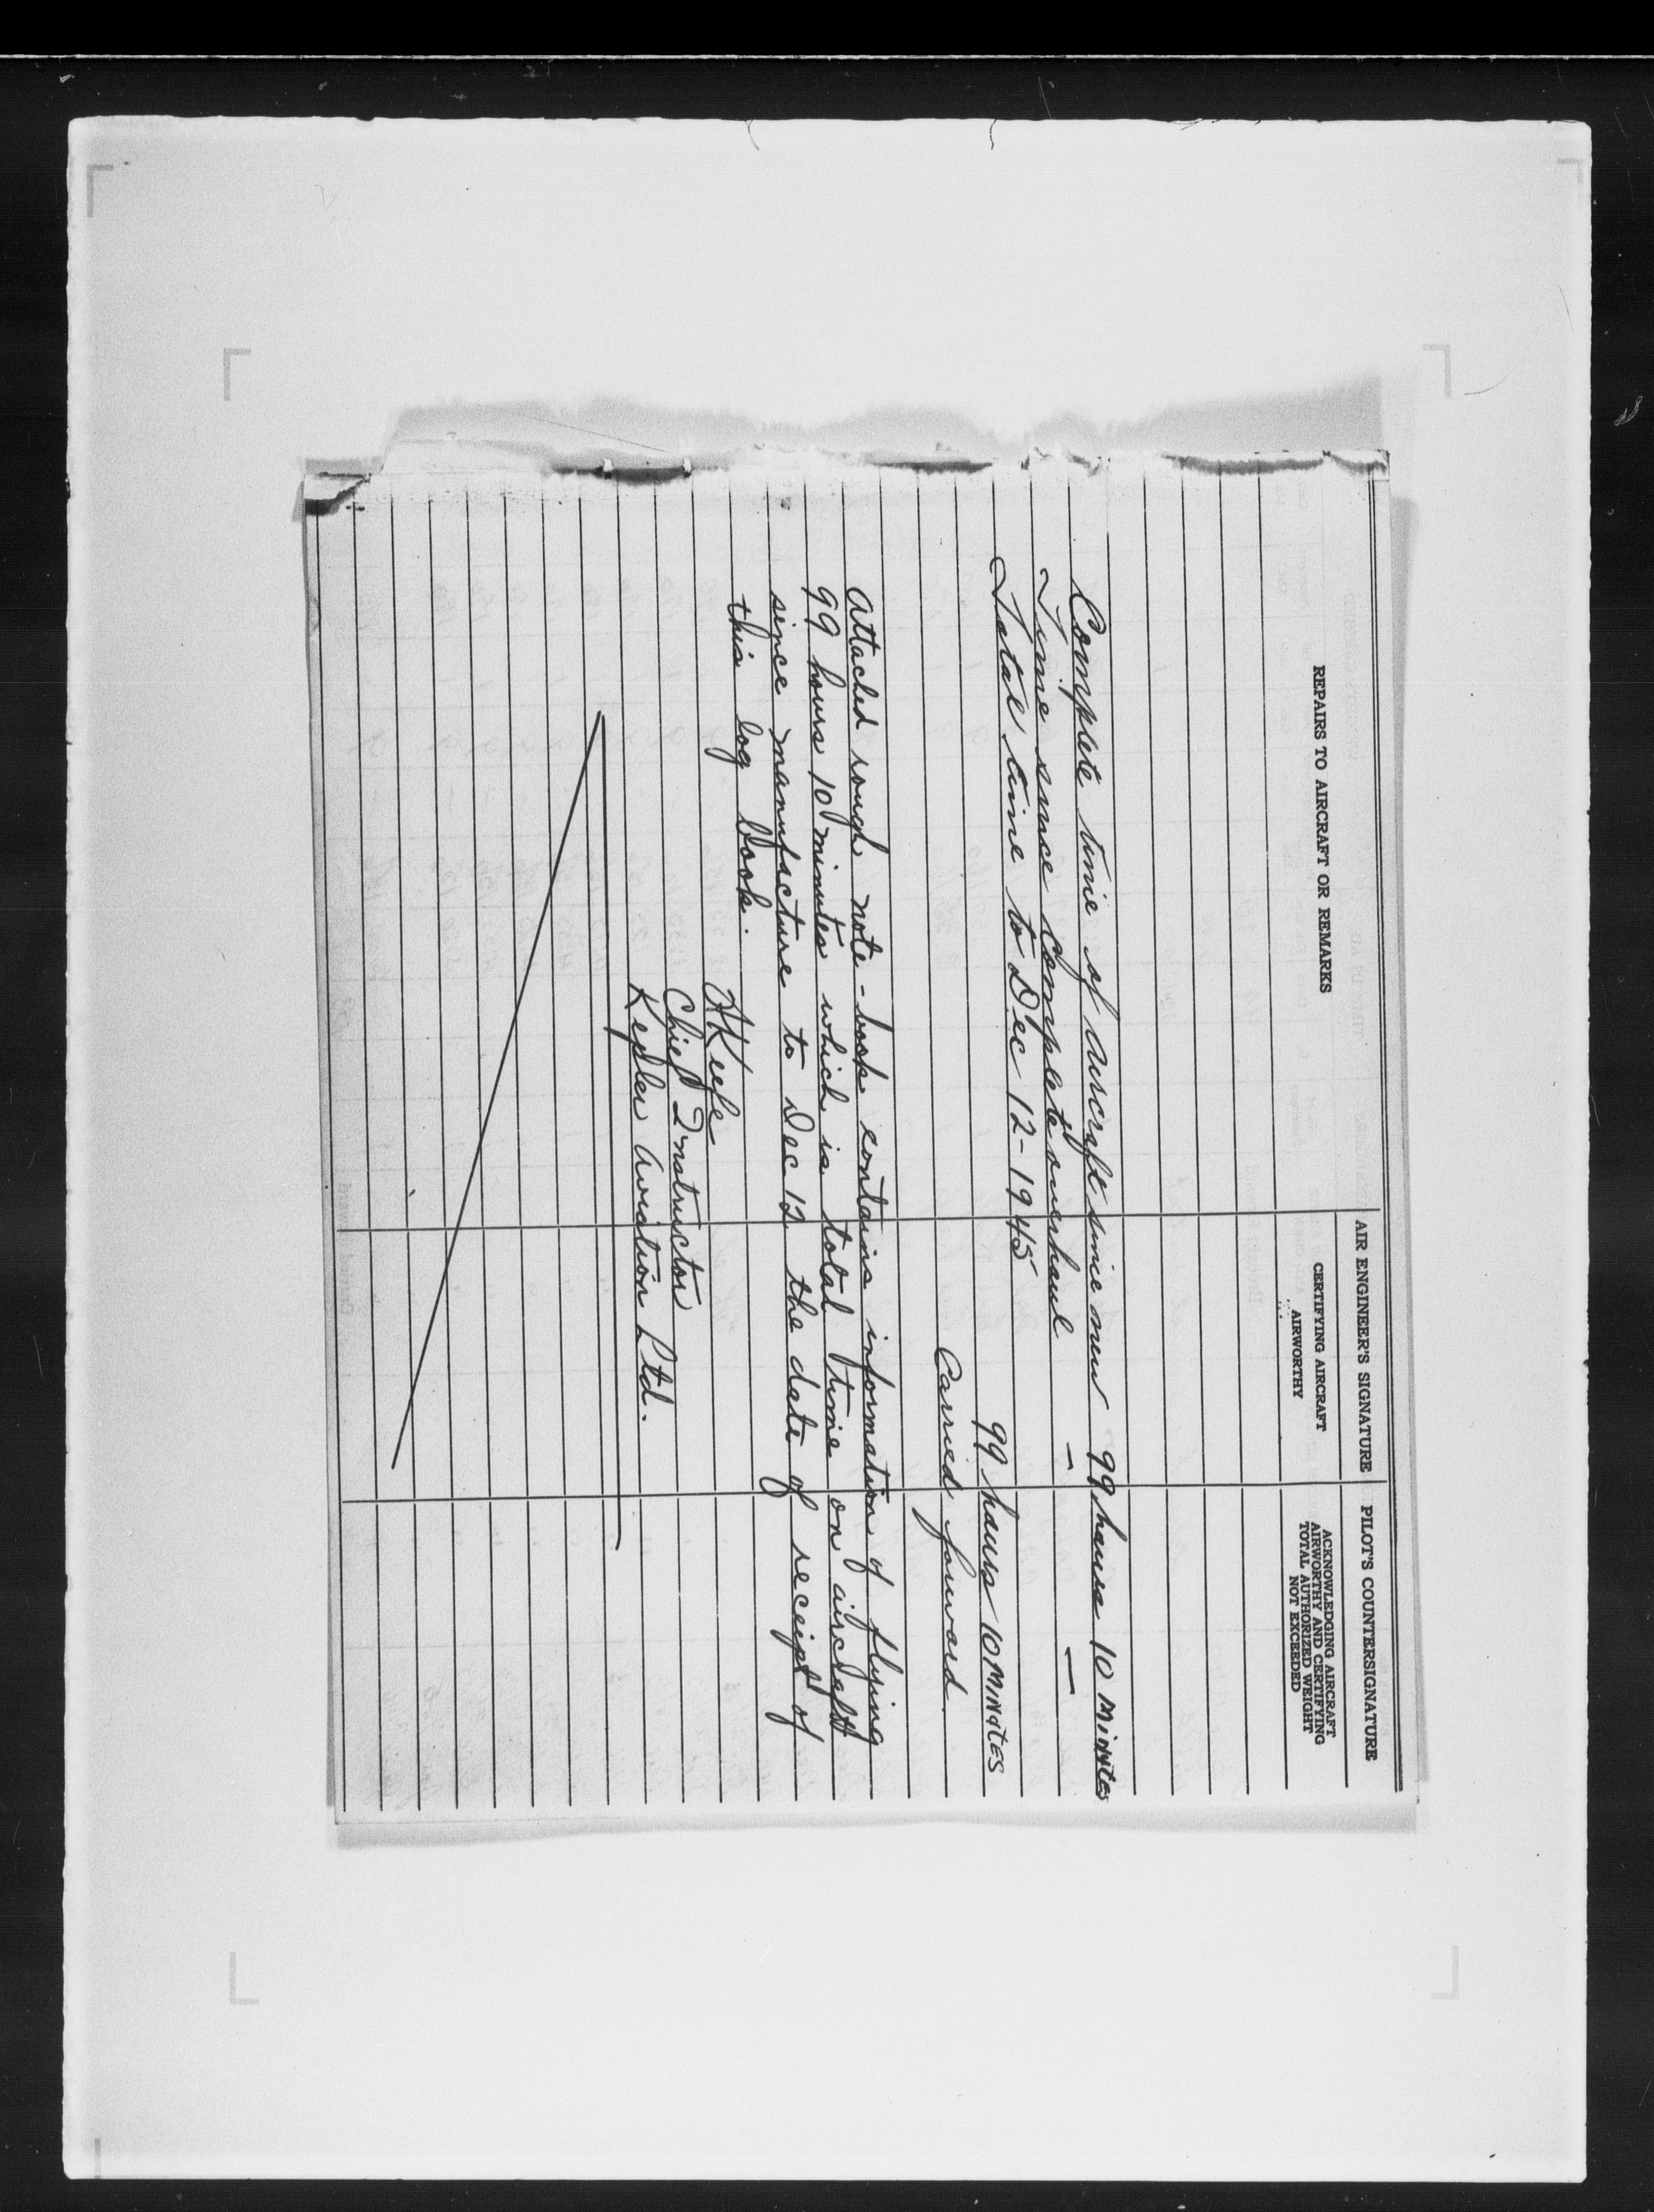 REPAIRS TO AIRCRAFT OR REMARKS
AIR ENGINEER'S SIGNATURE
CERTIFYING AIRCRAFT
AIRWORTHY
PILOT'S COUNTERSIGNATURE
ACKNOWLEDGING AIRCRAFT
AIRWORTHY AND CERTIFYING
TOTAL AUTHORIZED WEIGHT
NOT EXCEEDED
Complete time of aircraft since new 99 hours 10 Minutes
Time since complete overhaul — —
Total time to Dec 12-1945
99 hours 10 Minutes
Carried forward
Attached rough note-book contains information of flying
99 hours 10 minutes which is total time on aircraft
since manufacture to Dec 12 the date of receipt of
this log book.
Chief Instructor
Kepler Aviation Ltd.